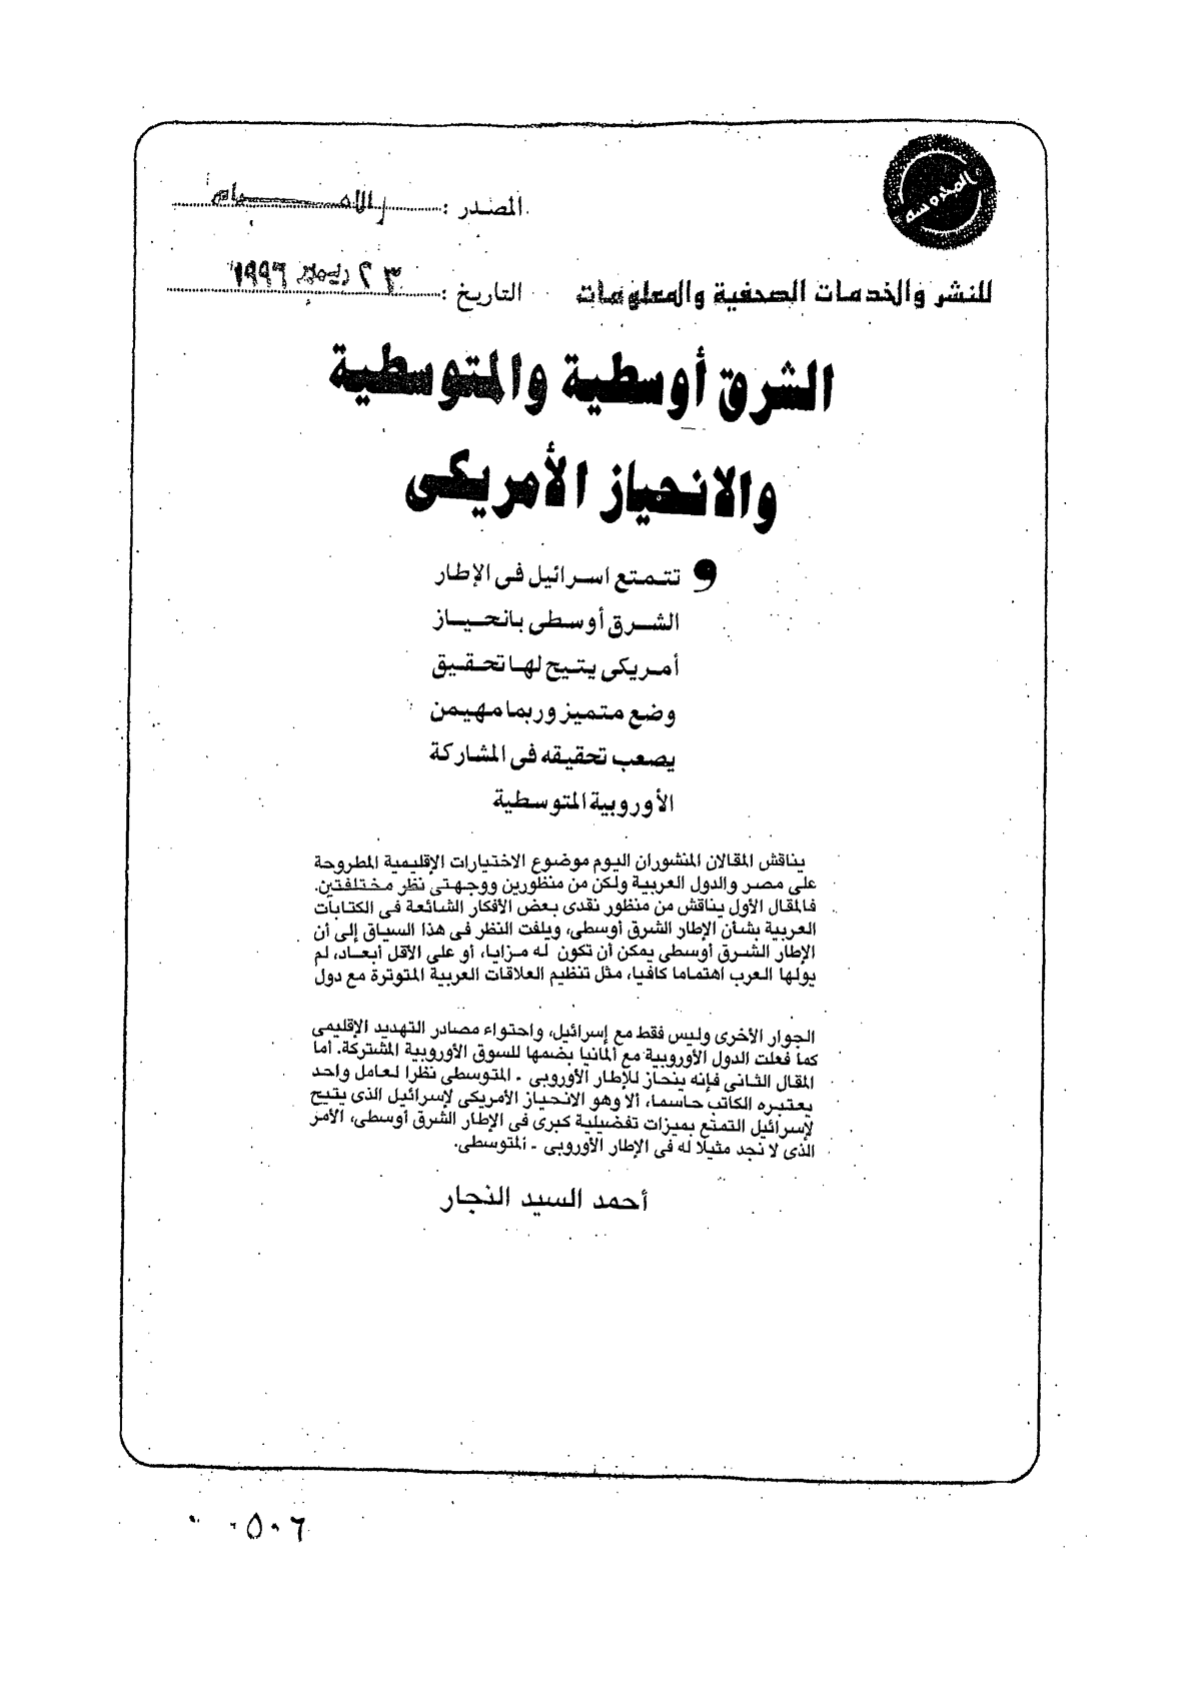 المصدر : الأهرام
للنشر والخدمات الصحفية والمعلومات التاريخ : ٢٣ ديسمبر ١٩٩٦
الشرق أوسطية والمتوسطية
والانحياز الأمريكى
و تتمتع اسرائيل فى الإطار
الشرق أوسطى بانحياز
أمريكى يتيح لها تحقيق
وضع متميز وربما مهيمن
يصعب تحقيقه فى المشاركة
الأوروبية المتوسطية
يناقش المقالان المنشوران اليوم موضوع الاختيارات الإقليمية المطروحة
على مصر والدول العربية ولكن من منظورين ووجهتى نظر مختلفتين.
فالمقال الأول يناقش من منظور نقدى بعض الأفكار الشائعة فى الكتابات
العربية بشأن الإطار الشرق أوسطى، ويلفت النظر فى هذا السياق إلى أن
الإطار الشرق أوسطى يمكن أن تكون له مزايا، أو على الأقل أبعاد، لم
يولها العرب اهتماما كافيا، مثل تنظيم العلاقات العربية المتوترة مع دول
الجوار الأخرى وليس فقط مع إسرائيل، واحتواء مصادر التهديد الإقليمى
كما فعلت الدول الأوروبية مع ألمانيا بضمها للسوق الأوروبية المشتركة. أما
المقال الثانى فإنه ينحاز للإطار الأوروبى - المتوسطى نظرا لعامل واحد
يعتبره الكاتب حاسما، ألا وهو الانحياز الأمريكى لإسرائيل الذى يتيح
لإسرائيل التمتع بميزات تفضيلية كبرى فى الإطار الشرق أوسطى، الأمر
الذى لا نجد مثيلا له فى الإطار الأوروبى - المتوسطى.
أحمد السيد النجار